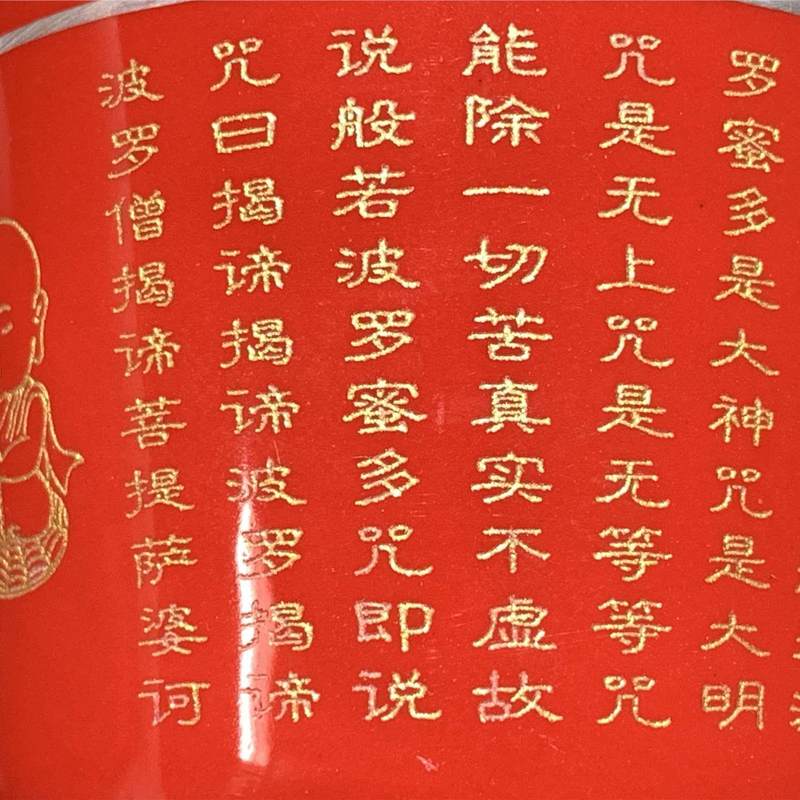 罗蜜多是大神咒是大明
咒是无上咒是无等等咒
能除一切苦真实不虚故
说般若波罗蜜多咒即说
咒曰揭谛揭谛波罗揭谛
波罗僧揭谛菩提萨婆诃